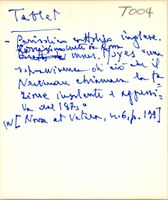 Tablet T004
- Periodico cattolico inglese.
mons. Moyes "una
sopravvivenza di ciò che il
Newman chiamava la fa-
zione insolente e aggressi-
va del 1870"
[N [Nova et Vetera, n. 6, p. 199]